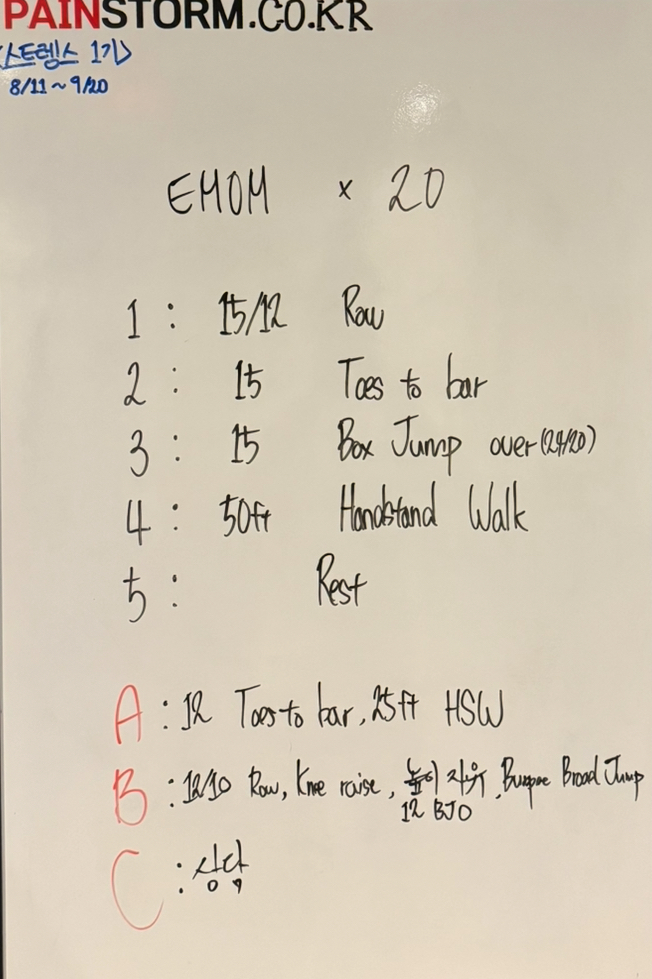 PAINSTORM.CO.KR
<스트렝스 1기>
8/11~9/20
EMOM x 20
1 : 15/12 Row
2 : 15 Toes to bar
3 : 15 Box Jump over (24/20)
4 : 50ft Handstand Walk
5 : Rest
A : 12 Toes to bar, 25ft HSW
B : 12/10 Row, Knee raise, 높이 자유, Burpee Broad Jump
12 BJO
C : 상담